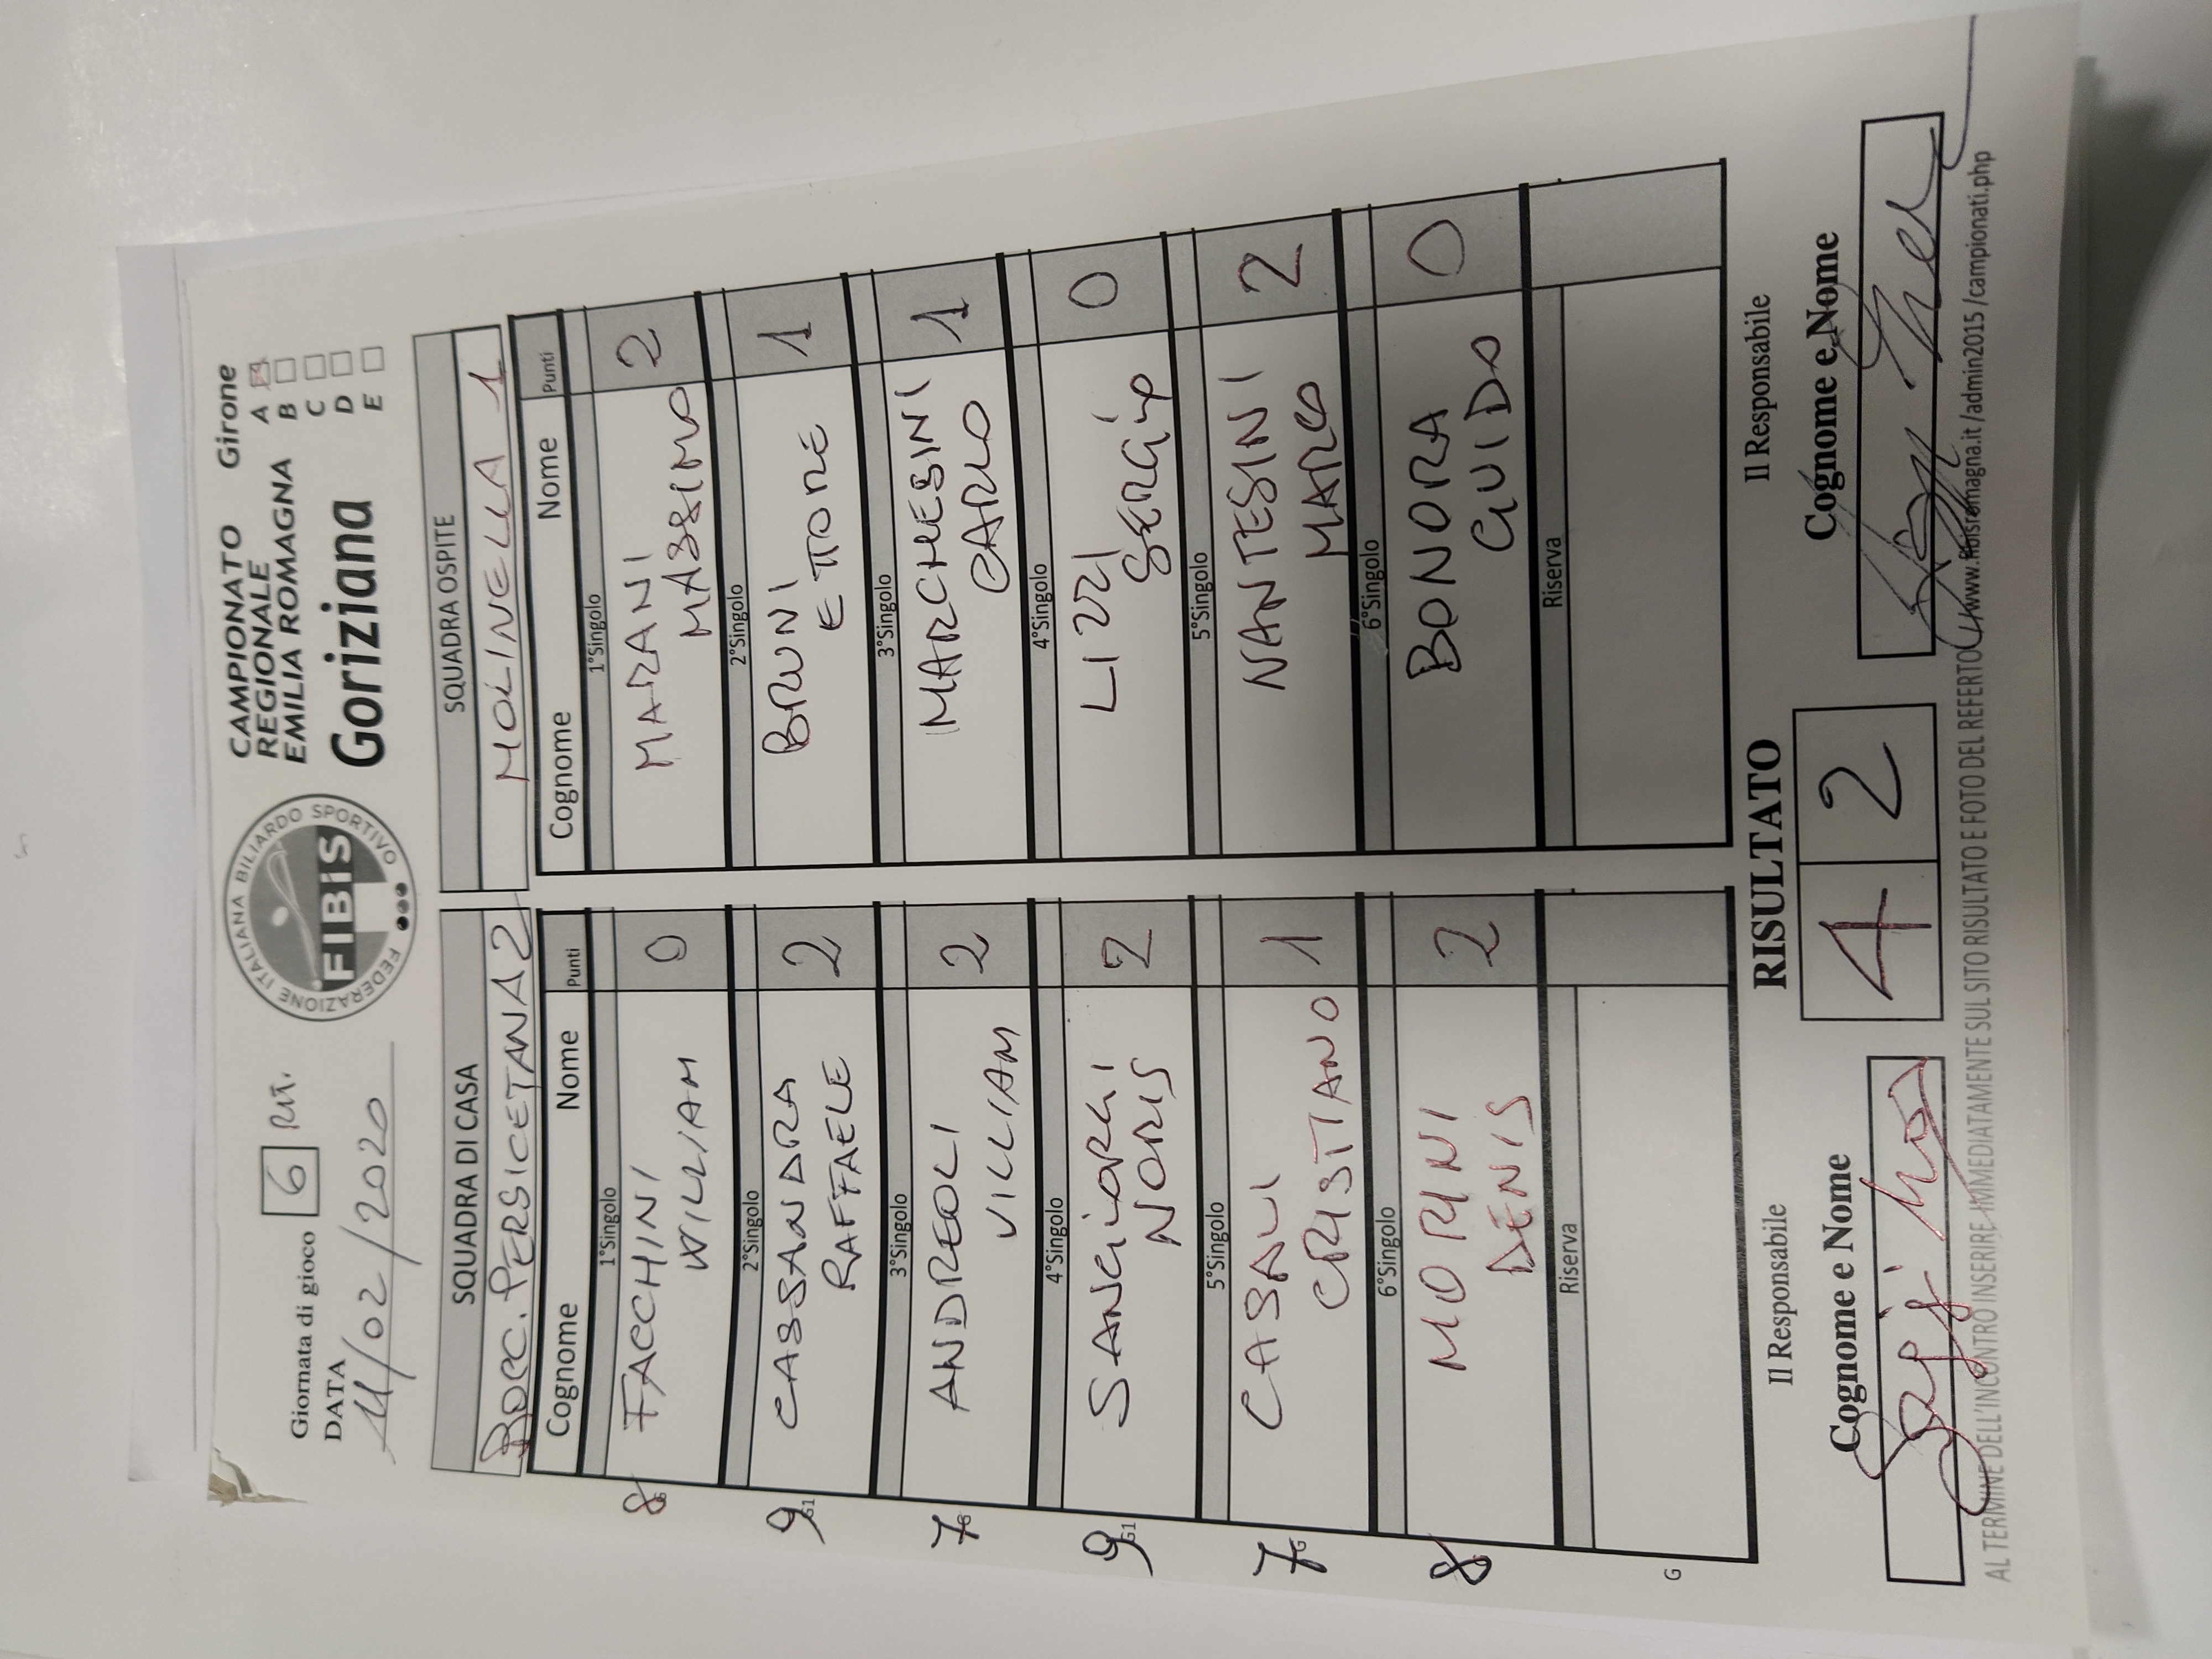 Giornata di gioco 6 Rit.
DATA
11/02/2020
FEDERAZIONE ITALIANA BILIARDO SPORTIVO
FIBiS
CAMPIONATO
REGIONALE
EMILIA ROMAGNA
Goriziana
Girone
A
B
C
D
E
SQUADRA DI CASA
BOCC. PERSICETANA 2
Cognome Nome Punti
1°Singolo
FACCHINI 0
WILLIAM
2°Singolo
CASSANDRA 2
RAFFAELE
3°Singolo
ANDREOLI 2
VILLIAM
4°Singolo
SANGIORGI 2
NORIS
5°Singolo
CASALI 1
CRISTIANO
6°Singolo
MORINI 2
DENIS
Riserva
8
9 G1
7
9 G1
7 G
8
G
SQUADRA OSPITE
MOLINELLA 1
Cognome Nome Punti
1°Singolo
MARANI 2
MASSIMO
2°Singolo
BRUNI 1
ETTORE
3°Singolo
MARCHESINI 1
CARLO
4°Singolo
LIZZI 0
SERGIO
5°Singolo
NANTESINI 2
MARCO
6°Singolo
BONORA 0
GUIDO
Riserva
Il Responsabile
Cognome e Nome
RISULTATO
4 2
Il Responsabile
Cognome e Nome
AL TERMINE DELL'INCONTRO INSERIRE IMMEDIATAMENTE SUL SITO RISULTATO E FOTO DEL REFERTO www.fibisromagna.it /admin2015 /campionati.php